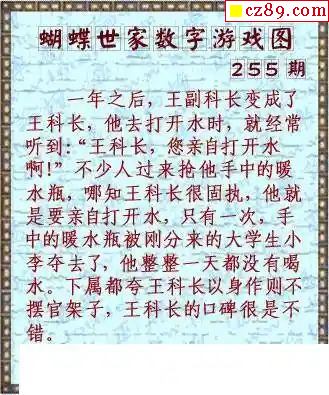 cz89.com
蝴蝶世家数字游戏图
255 期
一年之后，王副科长变成了
王科长，他去打开水时，就经常
听到:“王科长，您亲自打开水
啊!”不少人过来抢他手中的暖
水瓶，哪知王科长很固执，他就
是要亲自打开水，只有一次，手
中的暖水瓶被刚分来的大学生小
李夺去了，他整整一天都没有喝
水。下属都夸王科长以身作则不
摆官架子，王科长的口碑很是不
错。